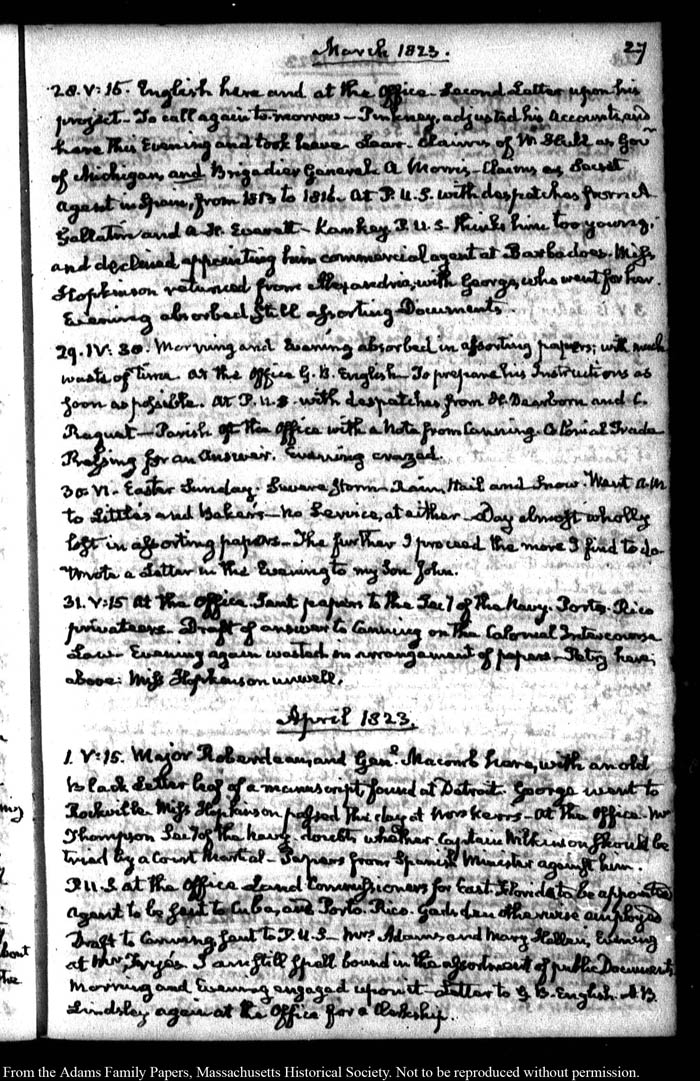 March 1823.
27
28. V:15. English here and at the Office. Second Letter upon his
project. To call again to-morrow — Pinkney, adjusted his Accounts, and
here this Evening and took leave. Lear. Claims of W. Hull as Govr
of Michigan, and Brigadier General. A Morris. Claims as Secret
Agent in Spain, from 1813 to 1816. At P. U.S. with despatches from A
Gallatin and A. H. Everett — Kankey P. U.S. thinks him too young;
and declined appointing him commercial agent at Barbadoes. Miss
Hopkinson returned from Alexandria, with George, who went for her.
Evening absorbed still assorting Documents.
29. IV:30. Morning and Evening absorbed in assorting papers; with much
waste of time. At the Office G. B. English. To prepare his Instructions as
soon as possible. At P. U.S. with despatches from H. Dearborn and C.
Raguet — Parish of the Office with a Note from Canning. Colonial Trade
Pressing for an answer. Evening crazed.
30. VI. Easter Sunday. Severe Storm. Rain, Hail and Snow. Went A.M
to Little's and Baker's — no Service, at either. Day almost wholly
lost in assorting papers — The further I proceed the more I find to do
Wrote a Letter in the Evening to my Son John.
31. V:15 At the Office. Sent papers to the Secy of the Navy. Porto-Rico
privateers. Draft of answer to Canning on the Colonial Intercourse
Law. Evening again wasted on arrangement of papers — Petry here,
above. Miss Hopkinson unwell.
April 1823.
1. V:15. Major Roberdeau, and Genl Macomb here, with an old
black Letter leaf of a manuscript, found at Detroit. George went to
Rockville. Miss Hopkinson passed the day at Mrs Kerr's — At the Office. Mr
Thompson Secy of the Navy, doubts whether Captain Wilkinson should be
tried by a Court Martial — Papers from Spanish Minister against him.
P. U.S. at the Office Land Commissioners for East Florida to be appointed
Agent to be sent to Cuba, and Porto-Rico. Gadsden otherwise employed
Draft to Canning, sent to P. U.S — Mrs Adams and Mary Hellen, Evening
at Mrs Frye's. I am still spell bound in the assortment of public Documents
Morning and Evening engaged upon it — Letter to G. B. English. A. B.
Lindsley again at the Office for a Clerkship.
From the Adams Family Papers, Massachusetts Historical Society. Not to be reproduced without permission.